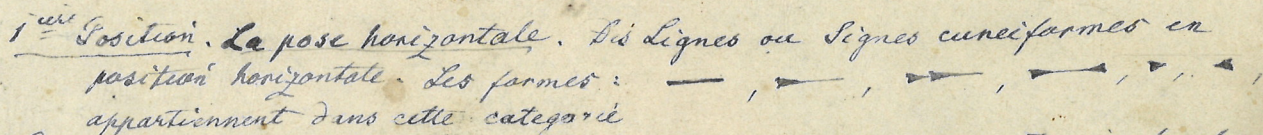 1ière Position. La pose horizontale. Dis Lignes ou Signes cuneiformes en
position horizontale. Les formes : — , , , , , ,
appartiennent dans cette categorie